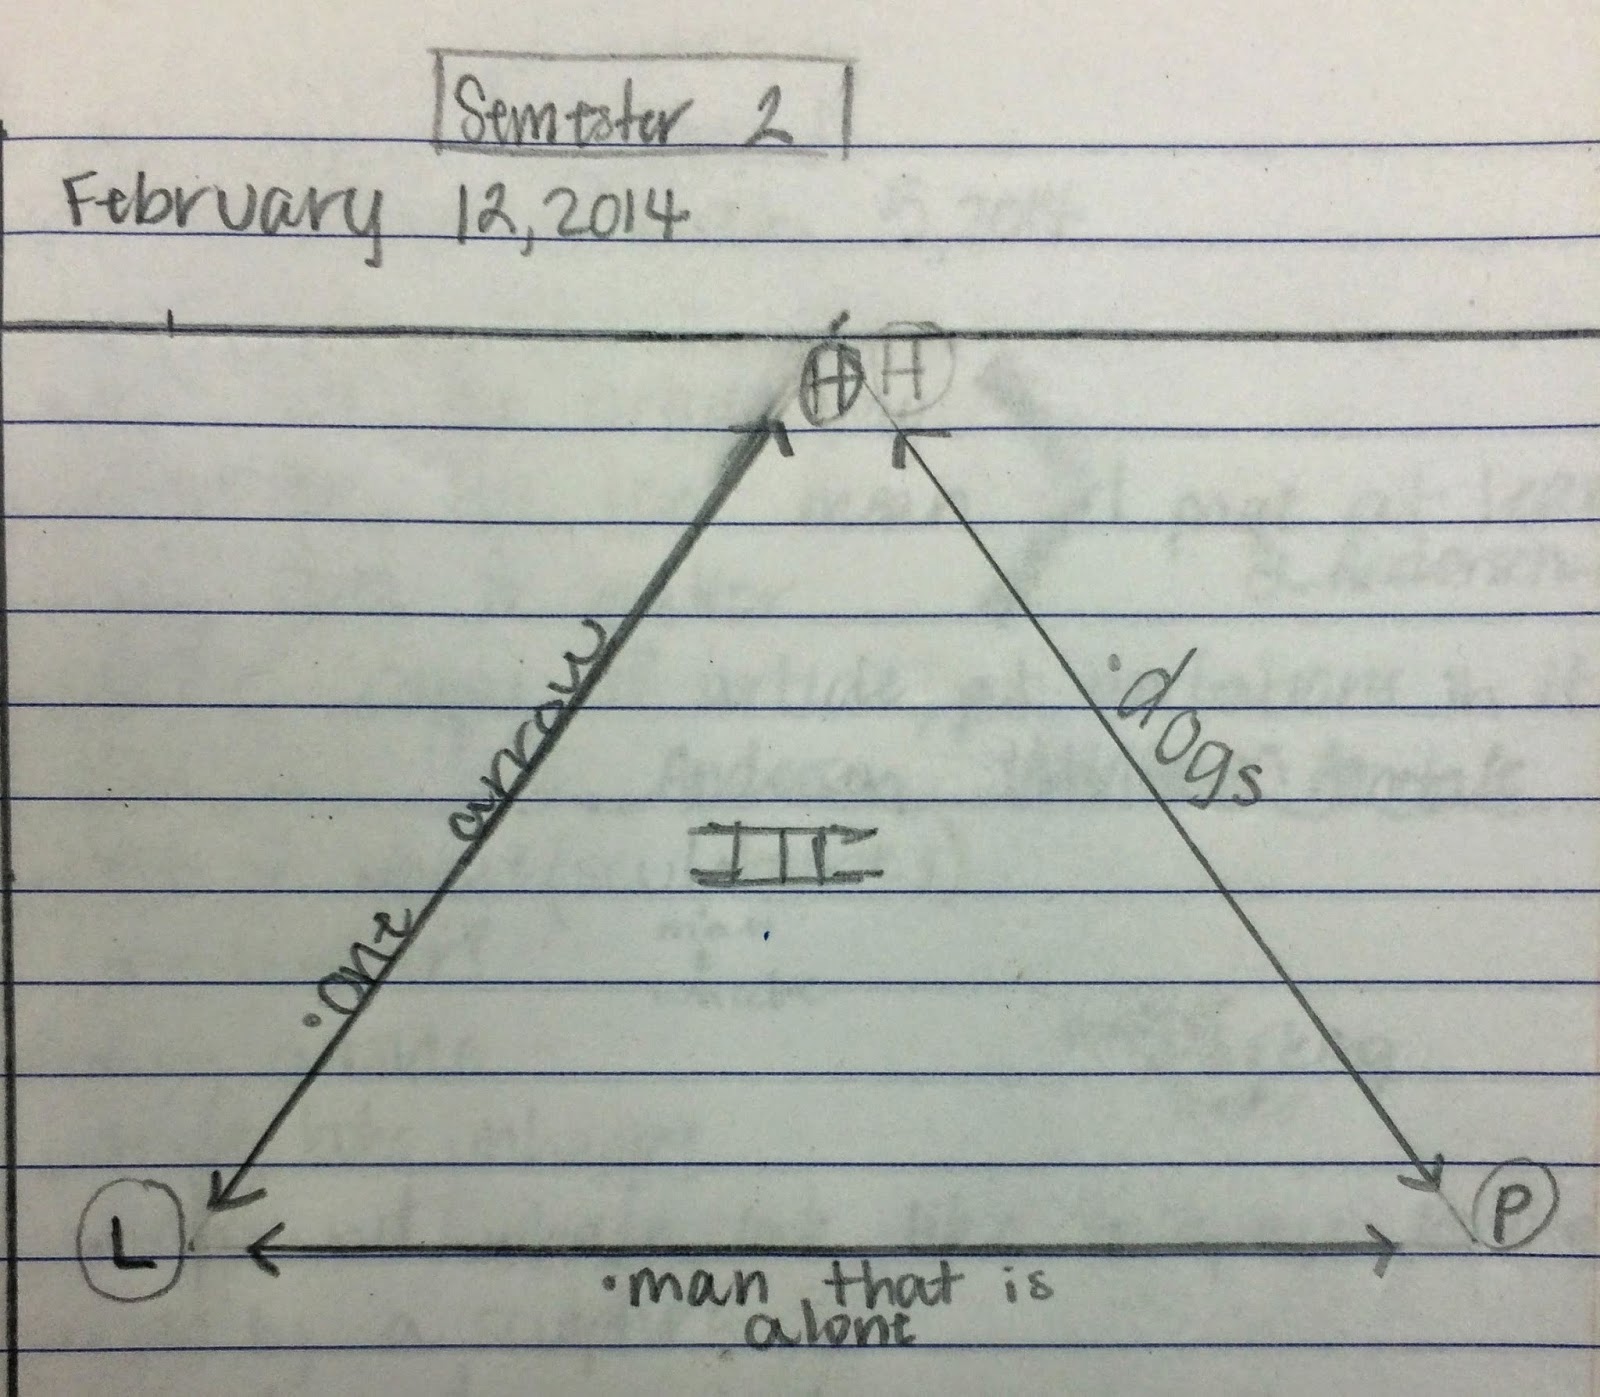 Semester 2
February 12, 2014
H H
·one arrow
·dogs
III
L
P
·man that is
alone